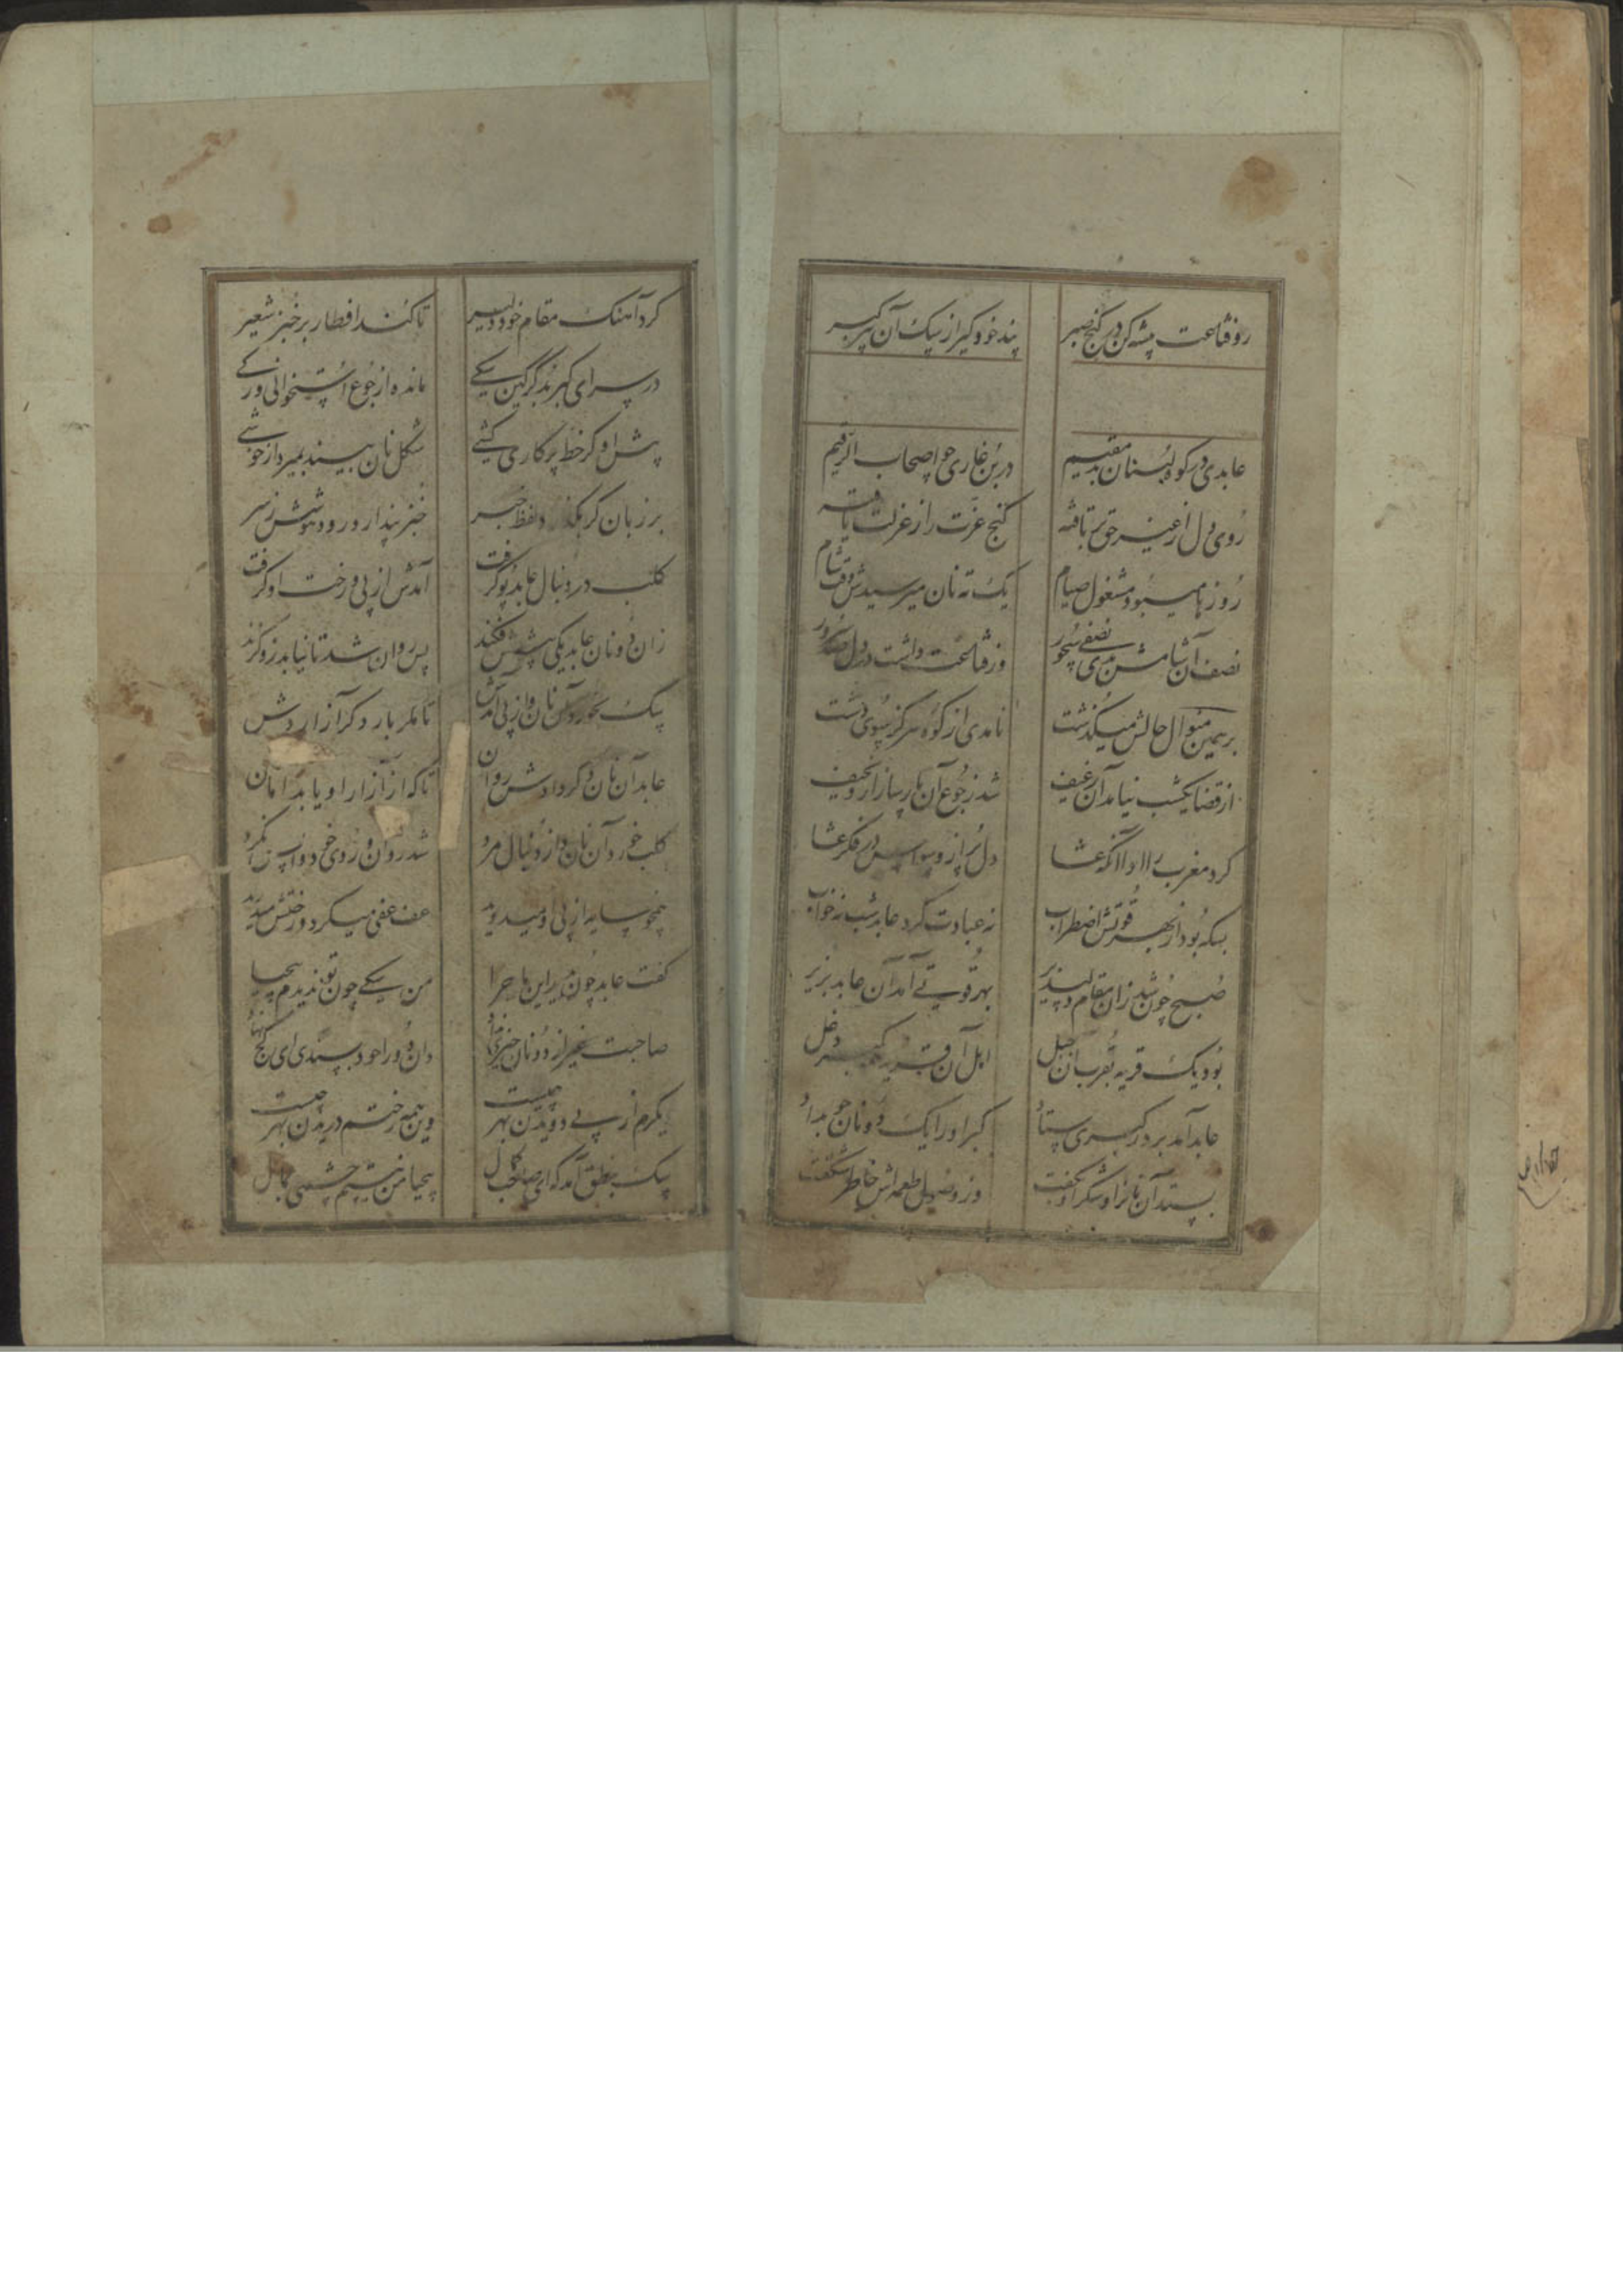 رو قناعت پیشه کن در کنج صبر پند خود گیر از سگ آن پیر گبر
عابدی در کوه لبنان بد مقیم در بن غاری چو اصحاب الرقیم
روی دل از غیر حق برتافته گنج عزت را ز عزلت یافته
روزها میبود مشغول صیام یک ته نان میرسیدش وقت شام
نصف آن شامش بدی نصفی سحور وز قناعت داشت در دل صد سرور
بر همین منوال حالش میگذشت نامدی از کوه هرگز بسوی دشت
از قضا یکشب نیامد آن رغیف شد ز جوع آن پارسا زار و نحیف
کرد مغرب را ادا آنگه عشا دل پر از وسواس در فکر عشا
بسکه بود از بهر قوتش اضطراب نه عبادت کرد عابد شب نه خواب
صبح چون شد زان مقام دلپذیر بهر قوتی آمد آن عابد بزیر
بود یک قریه بقرب آن جبل اهل آن قریه همه گبر و دغل
عابد آمد بر در گبری ستاد گبر او را یک دو نان جو بداد
بستد آن نانرا و شکر او بگفت وز وصول طعمه‌اش خاطر شکفت
کرد آهنگ مقام خود دلیر تا کند افطار بر خبز شعیر
در سرای گبر بد گرگین سگی مانده از جوع استخوانی و رگی
پیش او گر خط پرگاری کشی شکل نان بیند بمیرد از خوشی
بر زبان گر بگذرد لفظ خبر خبز پندارد رود هوشش ز سر
کلب در دنبال عابد پو گرفت آمدش از پی و رخت او گرفت
زان دو نان عابد یکی پیشش فکند پس روان شد تا نیابد زو گزند
سگ بخورد آن نان و از پی آمدش تا مگر بار دگر آزاردش
عابد آن نان دگر دادش روان تا که از آزار او یابد امان
کلب خورد آن نان و از دنبال مرد شد روان و روی خود واپس نکرد
همچو سایه از پی او میدوید عف عفی میکرد و رختش میدرید
گفت عابد چون بدید این ماجرا من سگی چون تو ندیدم بیحیا
صاحبت غیر از دو نان جو نداد وان دو را خود بستدی ای کج نهاد
دیگرم از پی دویدن بهر چیست وین همه رختم دریدن بهر چیست
سگ بنطق آمد که ای صاحب کمال بیحیا من نیستم چشمی بمال